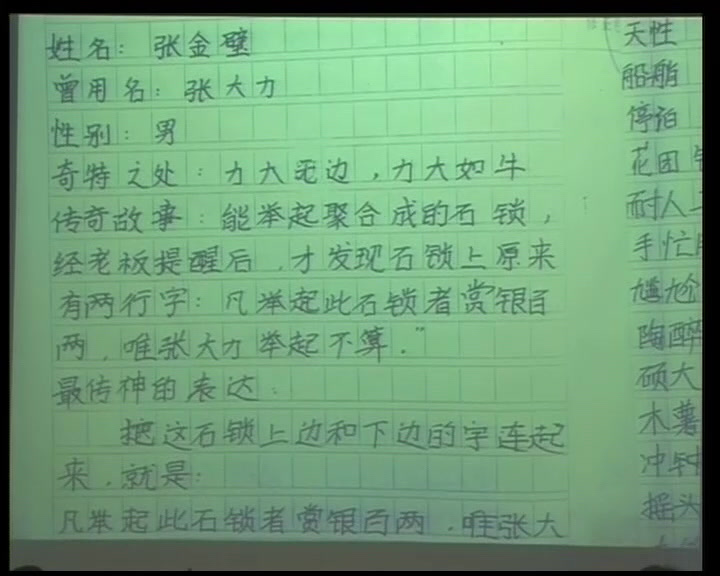 姓名：张金璧
曾用名：张大力
性别：男
奇特之处：力大无边，力大如牛
传奇故事：能举起聚合成的石锁，
经老板提醒后，才发现石锁上原来
有两行字：凡举起此石锁者赏银百
两，唯张大力举起不算。”
最传神的表达：
把这石锁上边和下边的字连起
来，就是：
凡举起此石锁者赏银百两，唯张大
天性
船艄
停泊
花团
耐人
手忙
尴尬
陶醉
硕大
木薯
冲钟
摇头